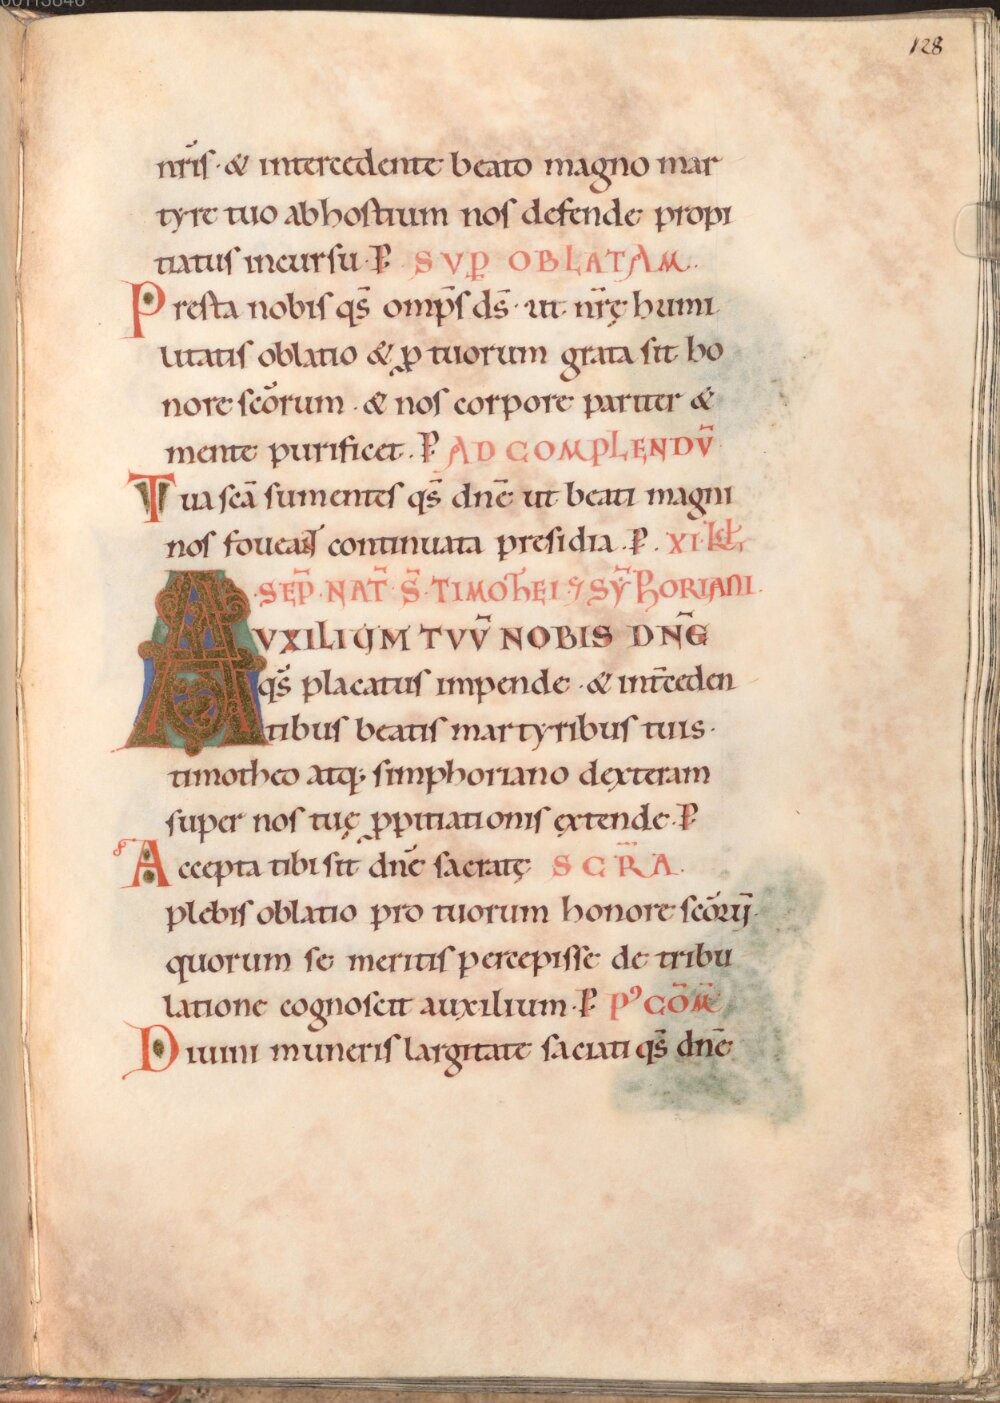 128
nr̄is· & intercedente beato magno mar
tyre tuo ab hostium nos defende propi
tiatus incursu· P̶ SVP̱ OBLATAM.
Presta nobis qs̄ omp̄s ds̄· ut nr̄ę humi
litatis oblatio & ꝓ tuorum grata sit ho
nore scōrum· & nos corpore pariter &
mente purificet. P̶ AD COMPLENDV̄
Tua scā sumentes qs̄ dnē ut beati magni
nos foueat continuata presidia. P̶. XI·KL̄
SEP̄·NAT̄·S̄·TIMOTHEI·⁊ SȲPHORIANI.
AVXILIUM TVV̄ NOBIS DN̄E
qs̄ placatus impende· & int̄ceden
tibus beatis martyribus tuis·
timotheo atq; simphoriano dexteram
super nos tuę ꝓpitiationis ęxtende. P̶
Accepta tibi sit dnē sacratę SCR̄A.
plebis oblatio pro tuorum honore scōꝝ·
quorum se meritis percepisse de tribu
latione cognoscit auxilium· P̶ Pꝰ COM̄
Diuini muneris largitate saciati qs̄ dnē